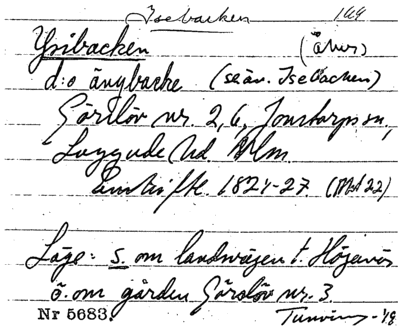 Isebacken 164
Ysibacken (Åker)
d:o ängbacke (se äv. Isebacken)
Görslöv nr. 2, 6, Jonstorps sn,
Luggude hd Mlm
Enskifte 1824-27 (Akt 22)
Läge: s. om landsvägen t. Höganäs
ö. om gården Görslöv nr. 3
Nr 5683. -48